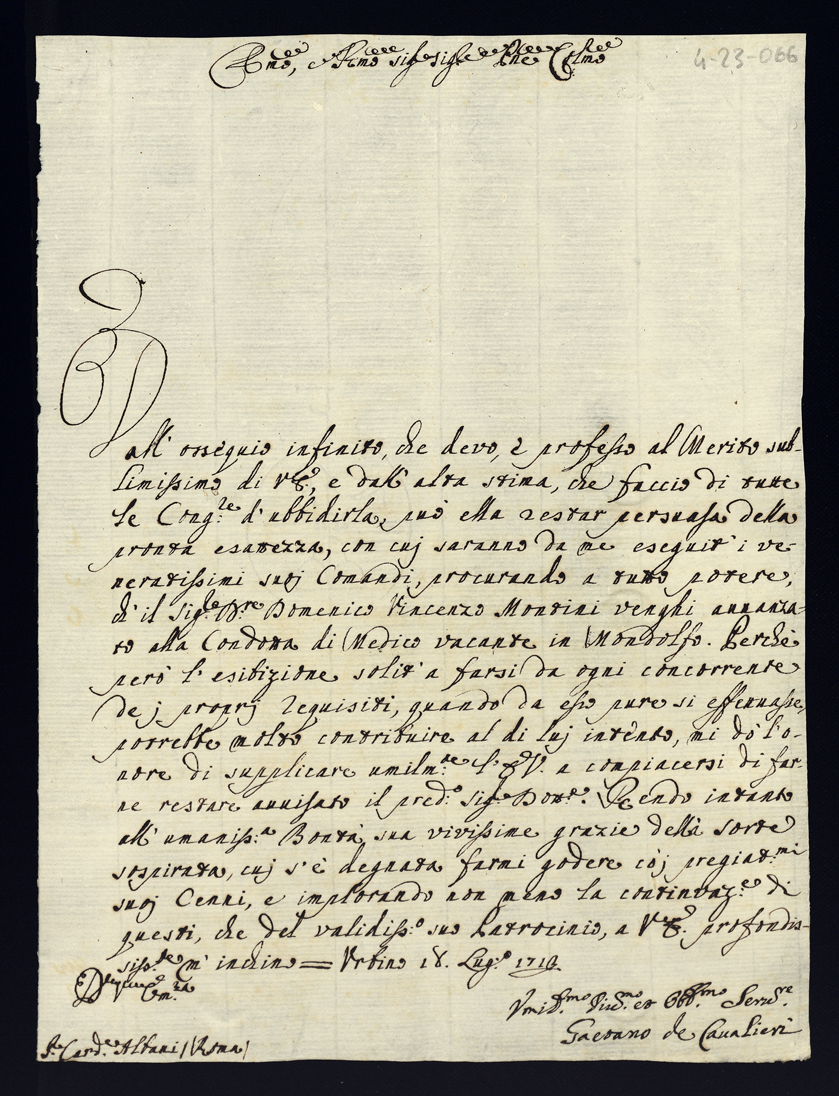 4-23-066
Em̃o, e Rm̃o Sig.re Sig.re Pne Colmo
Dall' ossequio infinito, che devo, e professo al Merito sub-
limissimo di V.E., e dall' alta stima, che faccio di tutte
le Cong.re d' ubbidirla, può ella restar persuasa della
pronta esattezza, con cuj saranno da me eseguit' i ve-
neratissimi suoj Comandi, procurando a tutto potere,
ch' il Sig.re D.re Domenico Vincenzo Montini venghi avvanza-
to alla Condotta di Medico vacante in Mondolfo. Perchè
però l' esibizione solit' a farsi da ogni concorrente
de j proprj requisiti, quando da esso pure si effettuasse,
potrebbe molto contribuire al di luj intento, mi dò l' o-
nore di supplicare umilm.te l' E.V. a compiacersi di far-
ne restare avvisato il pred.o Sig.re Dott.re. Rendo intanto
all' umaniss.a Bontà sua vivissime grazie della sorte
sospirata, cuj s' è degnata farmi godere coj pregiat.mi
suoj Cenni, e implorando non meno la continuaz.e di
questi, che del validiss.o suo Patrocinio, a V.E. profondis-
sim.te m' inchino = Urbino 18. Lug.o 1719
Di V.ra Em.za
Umil.mo Div.mo et Obb.mo Serv.re
Gaetano de Cavalieri
S.r Card.e Albani (Roma)